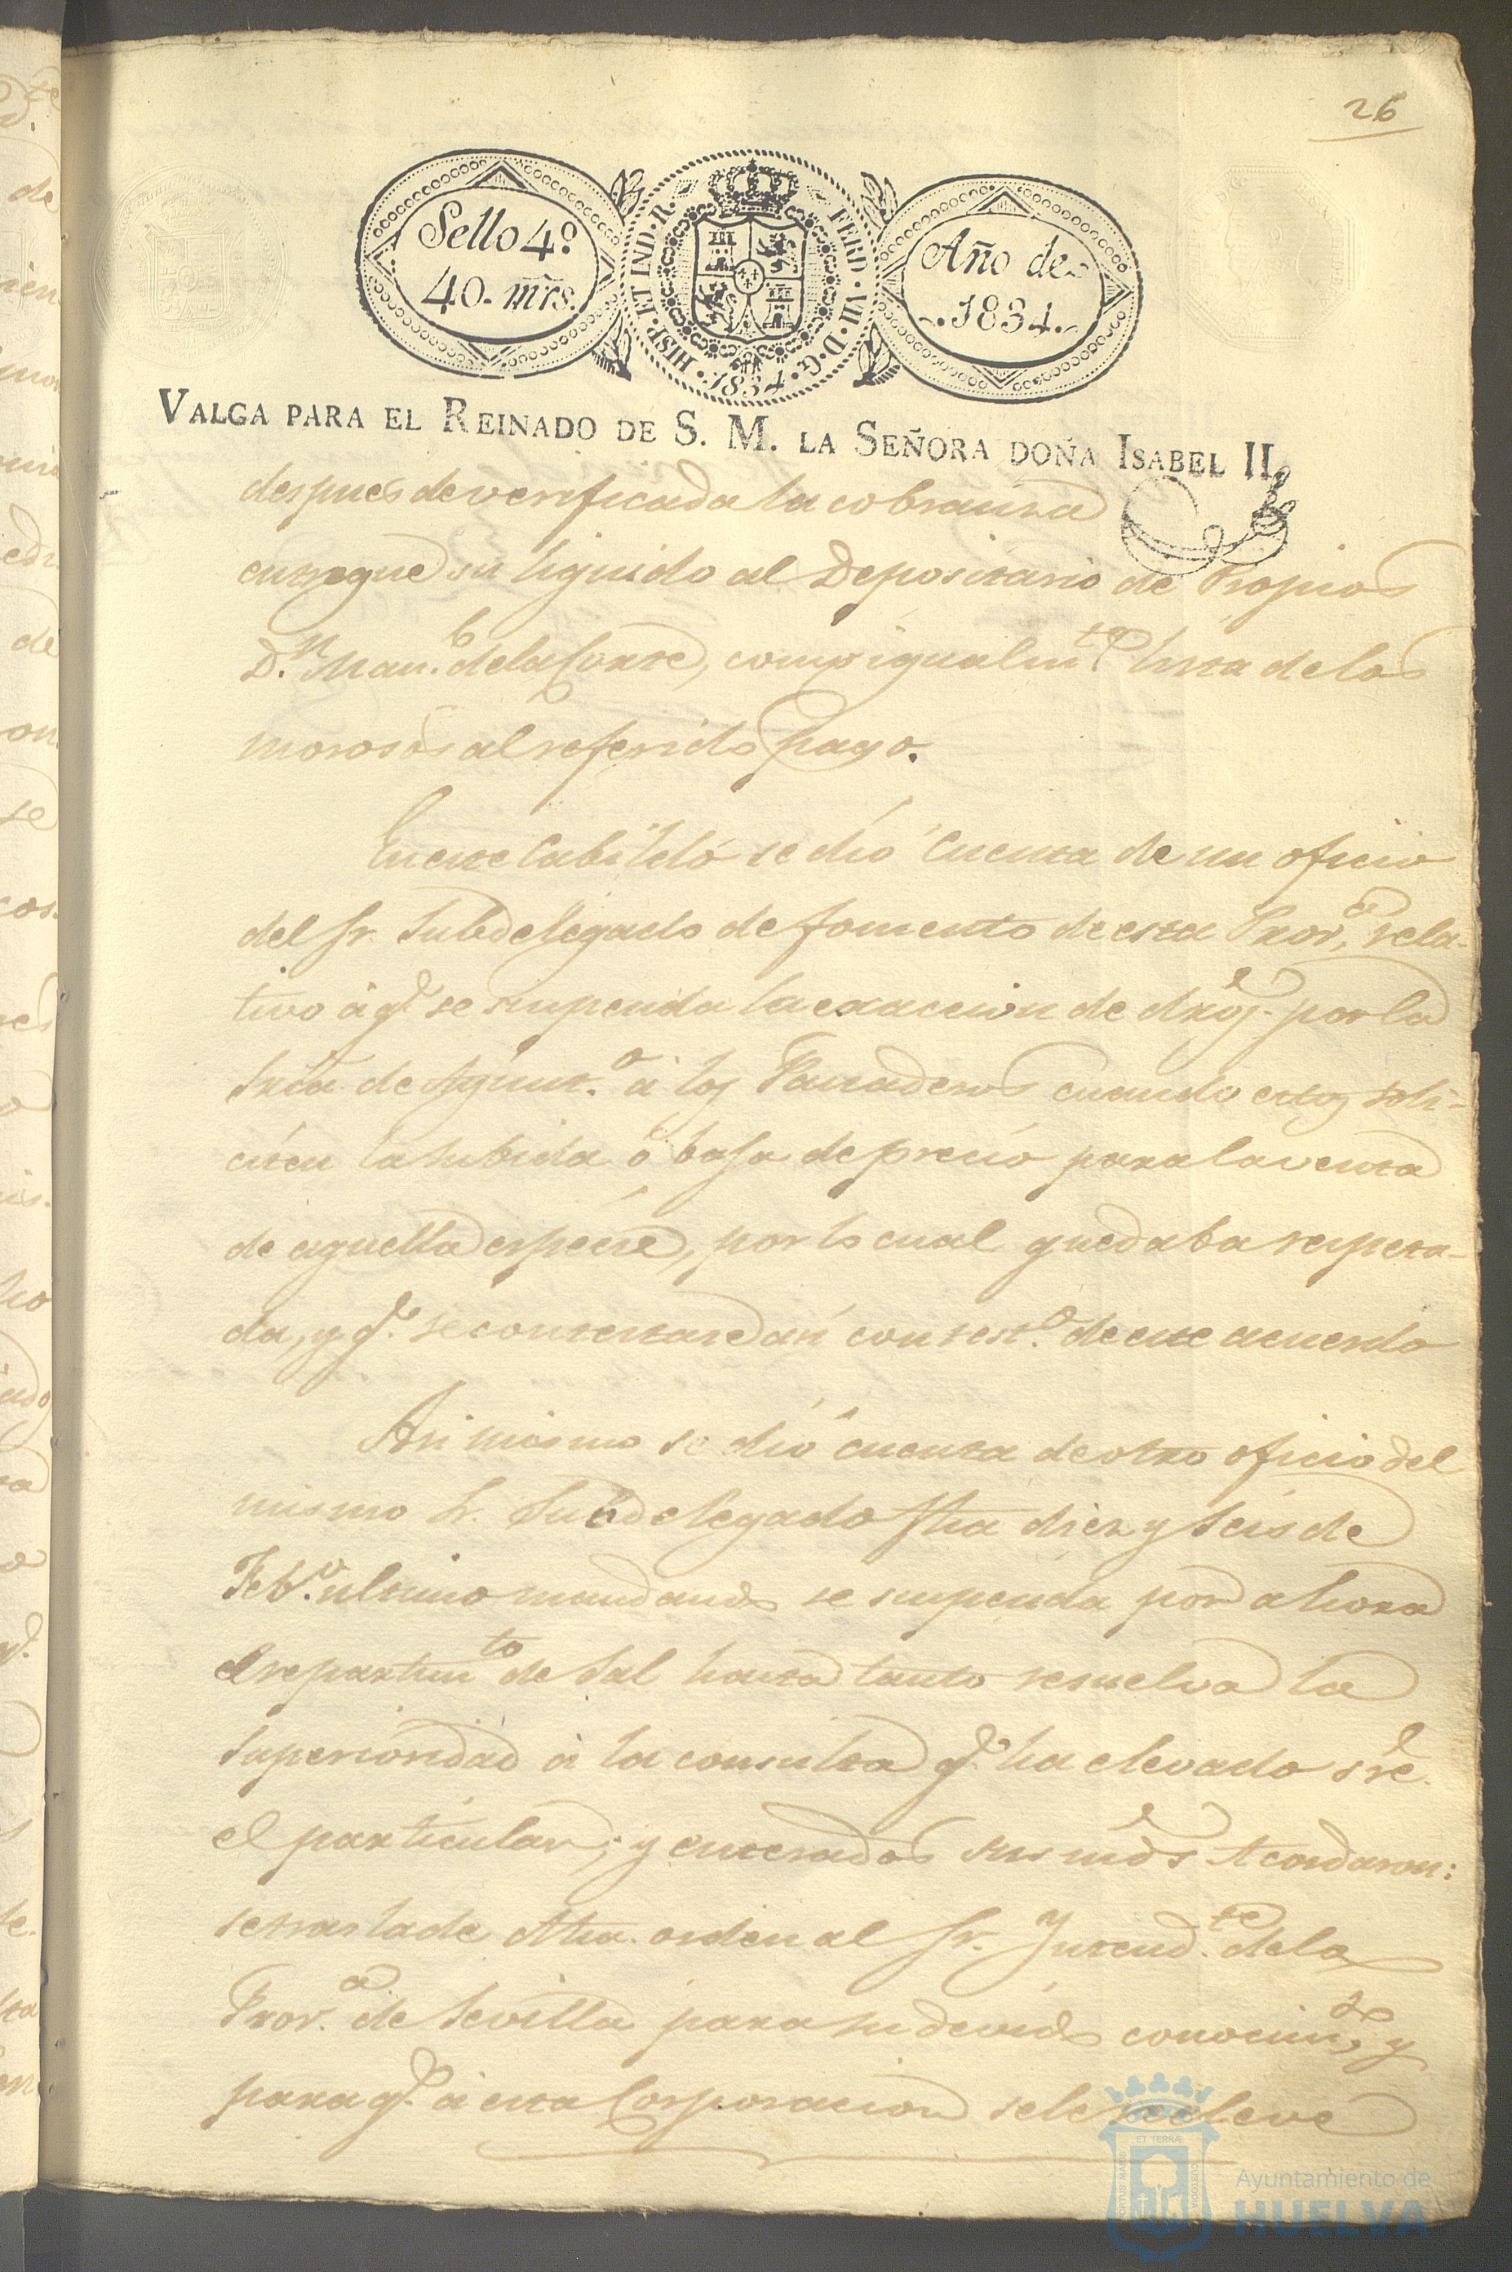 26
Sello 4º
40. mrs.
HISP. ET IND. R. FERD. VII. D. G. 1834.
Año de
1834.
VALGA PARA EL REINADO DE S. M. LA SEÑORA DOÑA ISABEL II.
despues de verificada la cobranza
entregue su liquido al Depositario de Propios
D.n Man.l de la Corte, como igualm.te lista de los
morosos al referido pago.
En este Cabildo se dió Cuenta de un oficio
del Sr. Subdelegado de fomento de esta Prov.a rela-
tivo á q.e se suspenda la exaccion de dros. por la
Sria. de Ayunt.o á los Panaderos cuando estos soli-
citen la subida ó baja de precio para la venta
de aquella especie, por lo cual quedaba
da, y q.e se contestase asi con test.o de este acuerdo
Asi mismo se dió cuenta de otro oficio del
mismo Sr. Subdelegado fha diez y seis de
Feb.o ultimo mandando se suspenda por ahora
el repartim.to de Sal hasta tanto resuelva la
Superioridad á la consulta q.e ha elevado sre.
el particular; y enterados sus mds. Acordaron:
se traslade dha. orden al Sr. Intend.te de la
Prov.a de Sevilla para su devido conocim.to, y
para q.e á esta Corporacion se le releve
ET TERRÆ
CUSTODIA
PORTUS MARIS
Ayuntamiento de
HUELVA